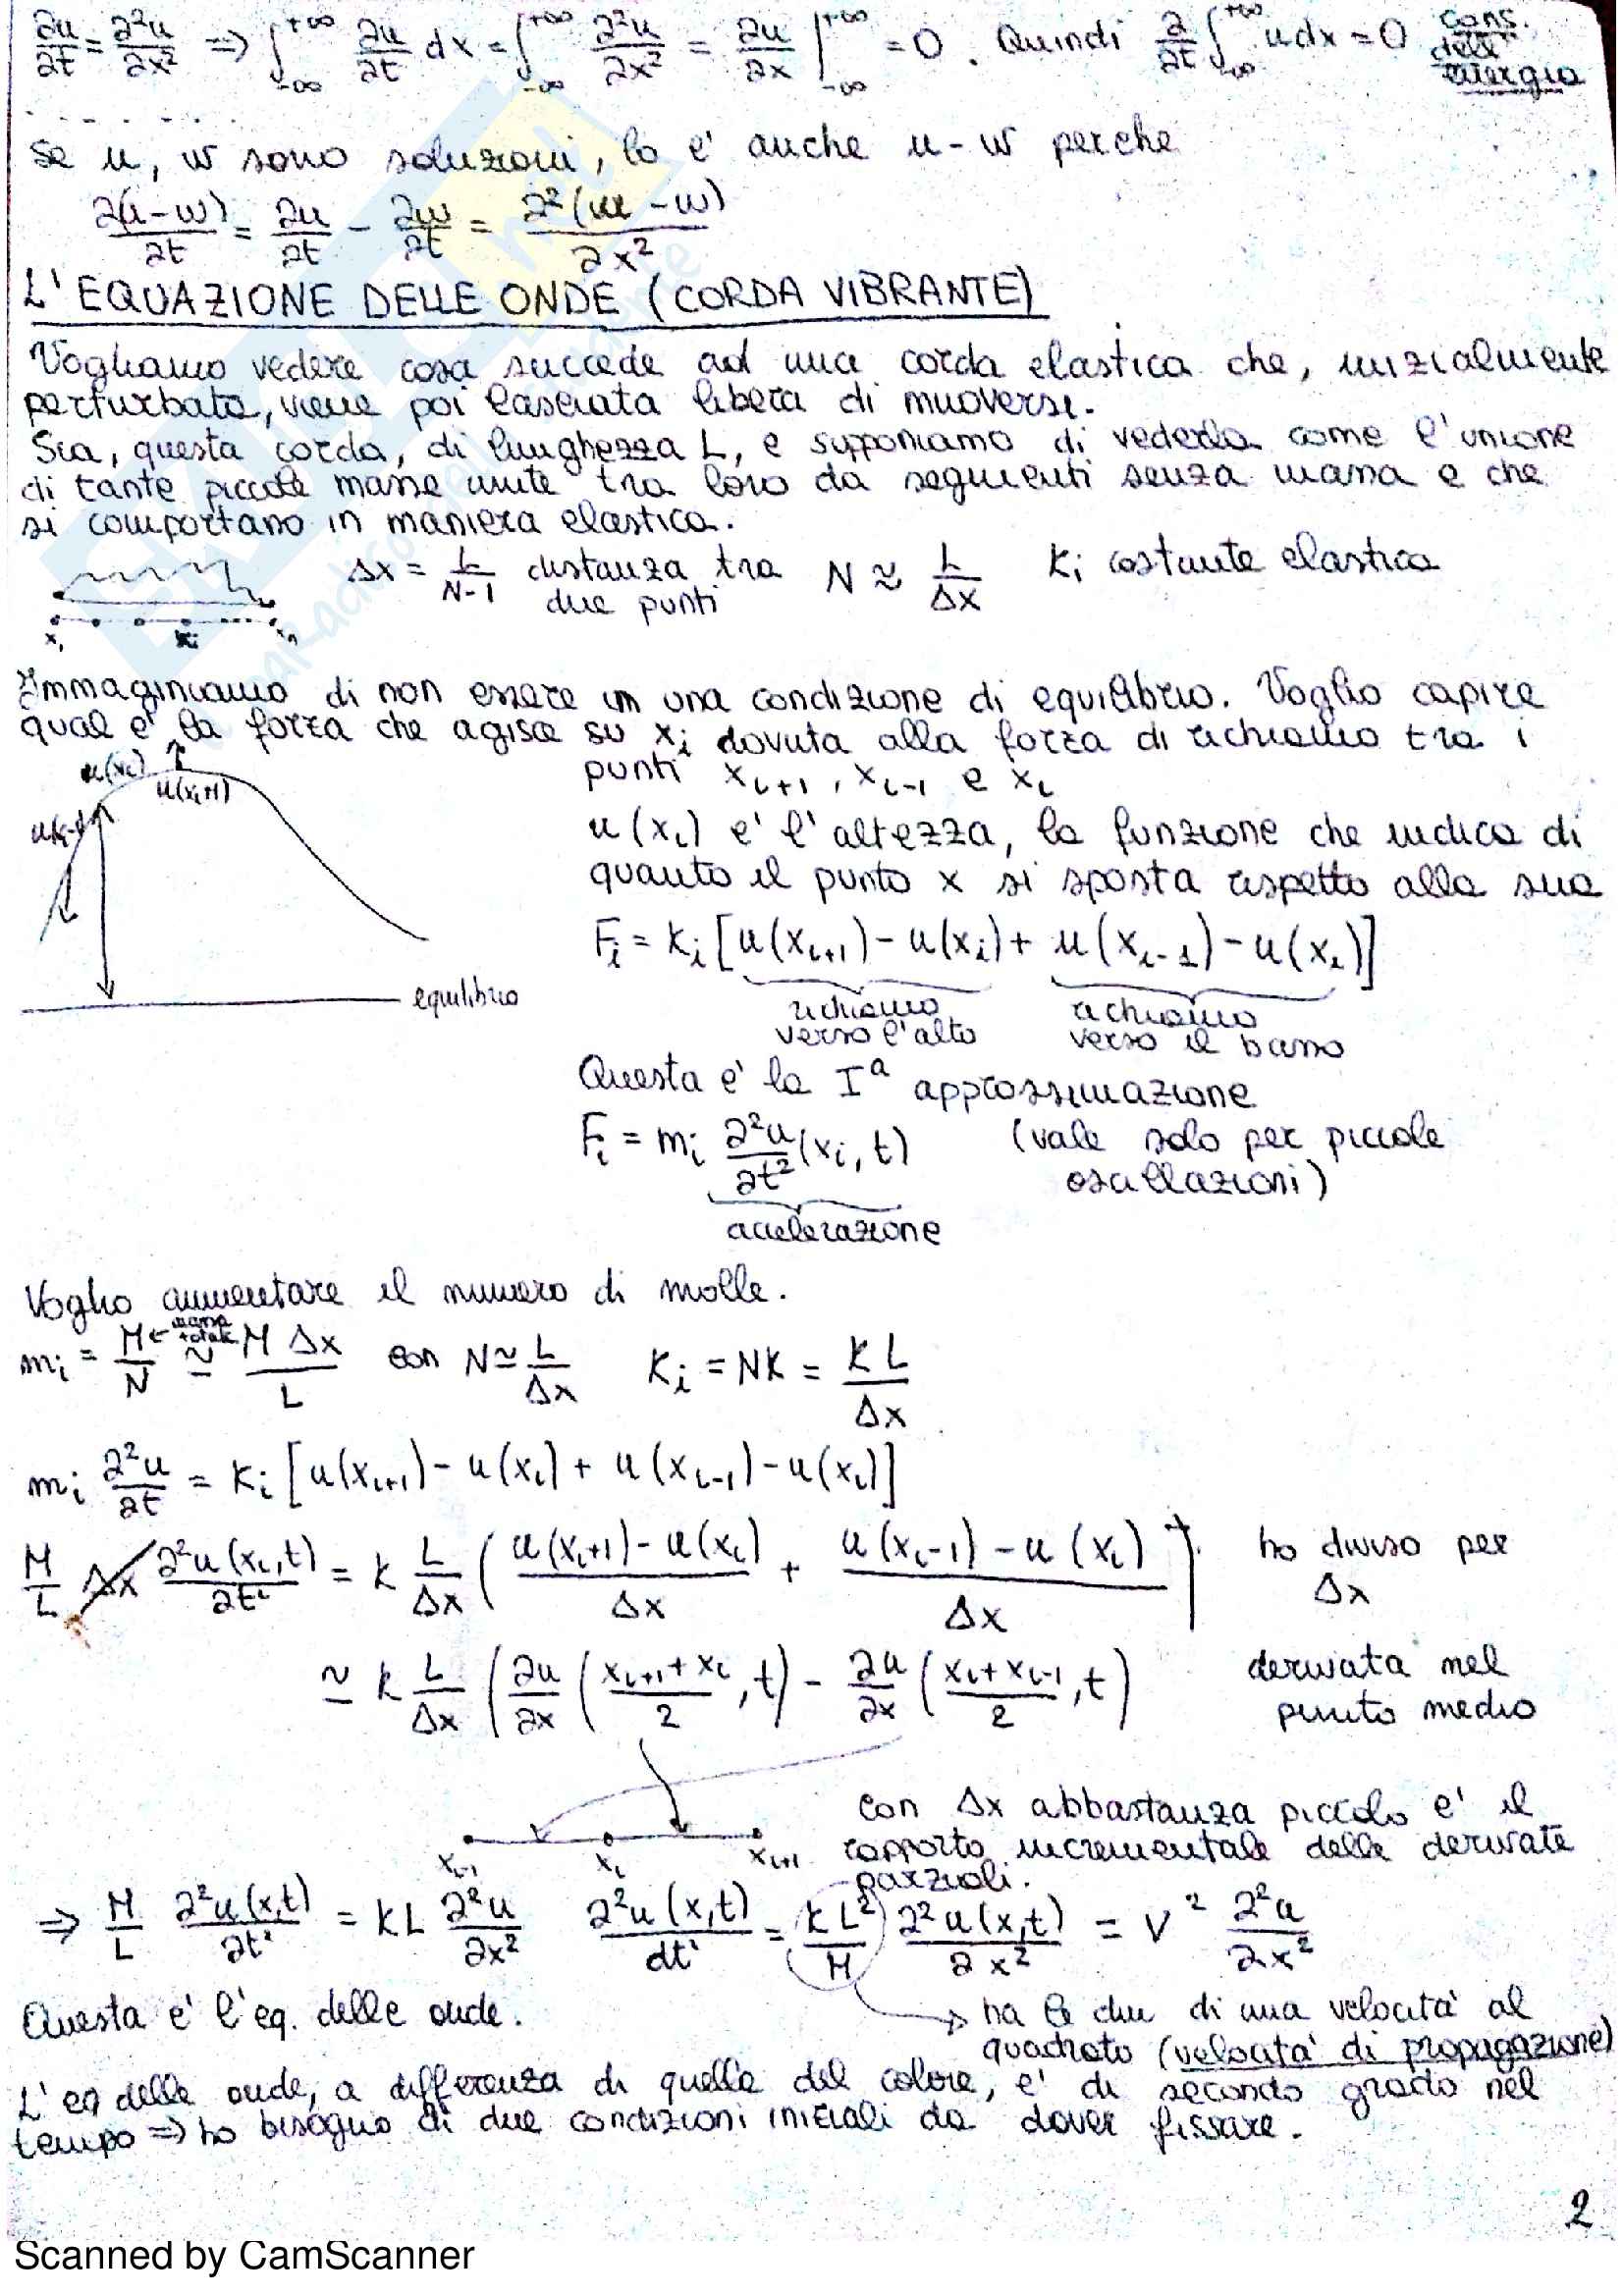 ∂u/∂t = ∂²u/∂x² ⇒ ∫_{-∞}^{+∞} ∂u/∂t dx = ∫_{-∞}^{+∞} ∂²u/∂x² = ∂u/∂x |_{-∞}^{+∞} = 0. Quindi ∂/∂t ∫_{-∞}^{+∞} u dx = 0 cons. dell' energia
Se u, w sono soluzioni, lo e' anche u - w perche
∂(u-w)/∂t = ∂u/∂t - ∂w/∂t = ∂²(u-w)/∂x²
L'EQUAZIONE DELLE ONDE (CORDA VIBRANTE)
Vogliamo vedere cosa succede ad una corda elastica che, inizialmente
perturbata, viene poi lasciata libera di muoversi.
Sia, questa corda, di lunghezza L, e supponiamo di vederla come l'unione
di tante piccole masse unite tra loro da segmenti senza massa e che
si comportano in maniera elastica.
Δx = L/(N-1) distanza tra due punti N ≈ L/Δx Ki costante elastica
x₁ xi xn
Immaginiamo di non essere in una condizione di equilibrio. Voglio capire
qual e' la forza che agisce su xi dovuta alla forza di richiamo tra i
punti x_{i+1}, x_{i-1} e xi
u(xi) u(x_{i+1})
u(xi) e' l'altezza, la funzione che indica di
quanto il punto x si sposta rispetto alla sua
Fi = Ki [u(x_{i+1}) - u(xi) + u(x_{i-1}) - u(xi)]
equilibrio
richiamo verso l'alto richiamo verso il basso
Questa e' la Iª approssimazione
Fi = mi ∂²u/∂t² (xi, t) (vale solo per piccole oscillazioni)
accelerazione
Voglio aumentare il numero di molle.
mi = M/N ← massa totale ≃ M Δx/L con N ≃ L/Δx Ki = NK = KL/Δx
mi ∂²u/∂t = Ki [u(x_{i+1}) - u(xi) + u(x_{i-1}) - u(xi)]
M/L Δx ∂²u(xi,t)/∂t² = K L/Δx ( (u(x_{i+1}) - u(xi))/Δx + (u(x_{i-1}) - u(xi))/Δx ) ho diviso per Δx
≃ K L/Δx ( ∂u/∂x ((x_{i+1}+xi)/2, t) - ∂u/∂x ((xi+x_{i-1})/2, t) ) derivata nel punto medio
x_{i-1} xi x_{i+1}
con Δx abbastanza piccolo e' il
rapporto incrementale delle derivate
parziali.
⇒ M/L ∂²u(x,t)/∂t² = KL ∂²u/∂x² ∂²u(x,t)/dt² = KL²/M ∂²u(x,t)/∂x² = V² ∂²u/∂x²
Questa e' l'eq. delle onde.
ha le dim di una velocita' al
quadrato (velocita' di propagazione)
L'eq delle onde, a differenza di quella del calore, e' di secondo grado nel
tempo ⇒ ho bisogno di due condizioni iniziali da dover fissare.
2
Scanned by CamScanner